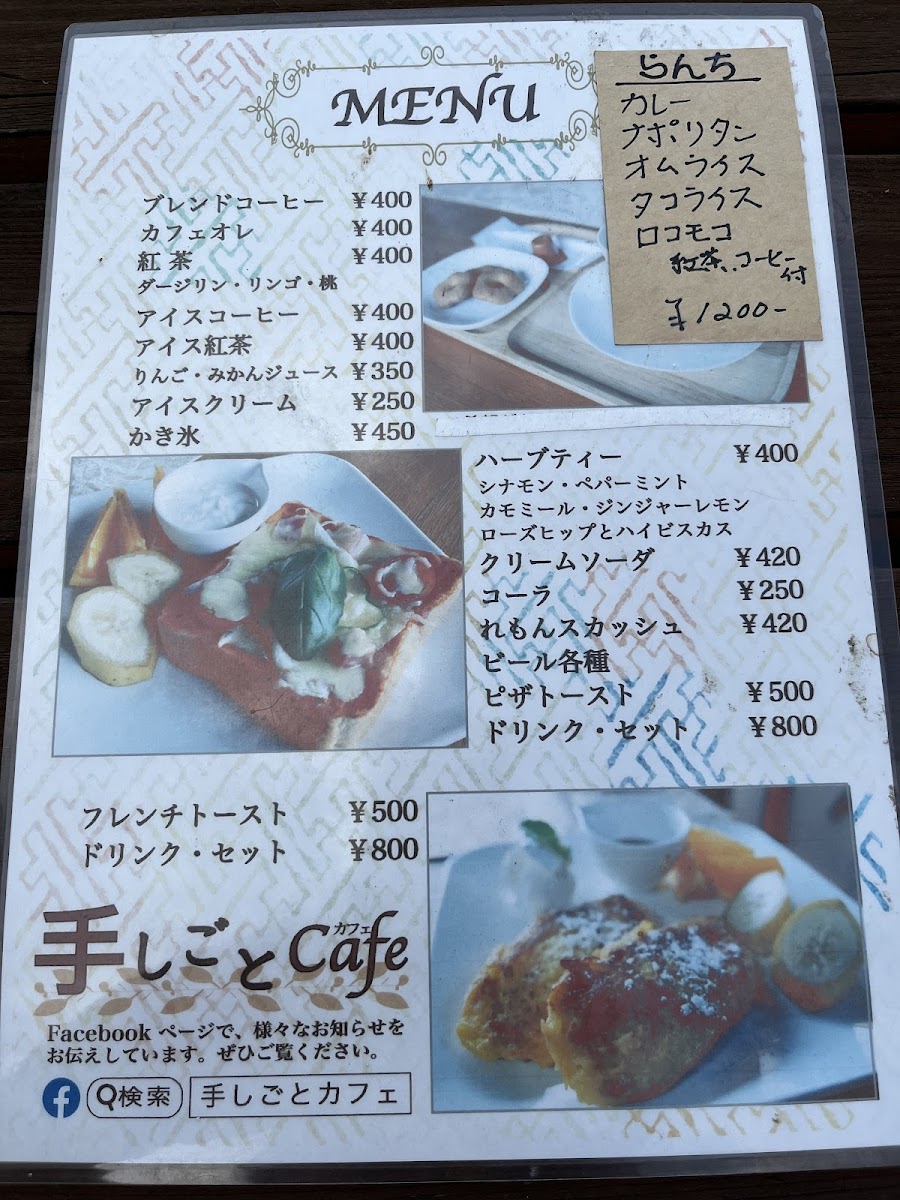 MENU
らんち
カレー
ナポリタン
オムライス
タコライス
ロコモコ
紅茶、コーヒー
付
¥1200-
ブレンドコーヒー ¥400
カフェオレ ¥400
紅茶 ¥400
ダージリン・リンゴ・桃
アイスコーヒー ¥400
アイス紅茶 ¥400
りんご・みかんジュース ¥350
アイスクリーム ¥250
かき氷 ¥450
ハーブティー ¥400
シナモン・ペパーミント
カモミール・ジンジャーレモン
ローズヒップとハイビスカス
クリームソーダ ¥420
コーラ ¥250
れもんスカッシュ ¥420
ビール各種
ピザトースト ¥500
ドリンク・セット ¥800
フレンチトースト ¥500
ドリンク・セット ¥800
カフェ
手しごとCafe
Facebook ページで、様々なお知らせを
お伝えしています。ぜひご覧ください。
f 検索 手しごとカフェ